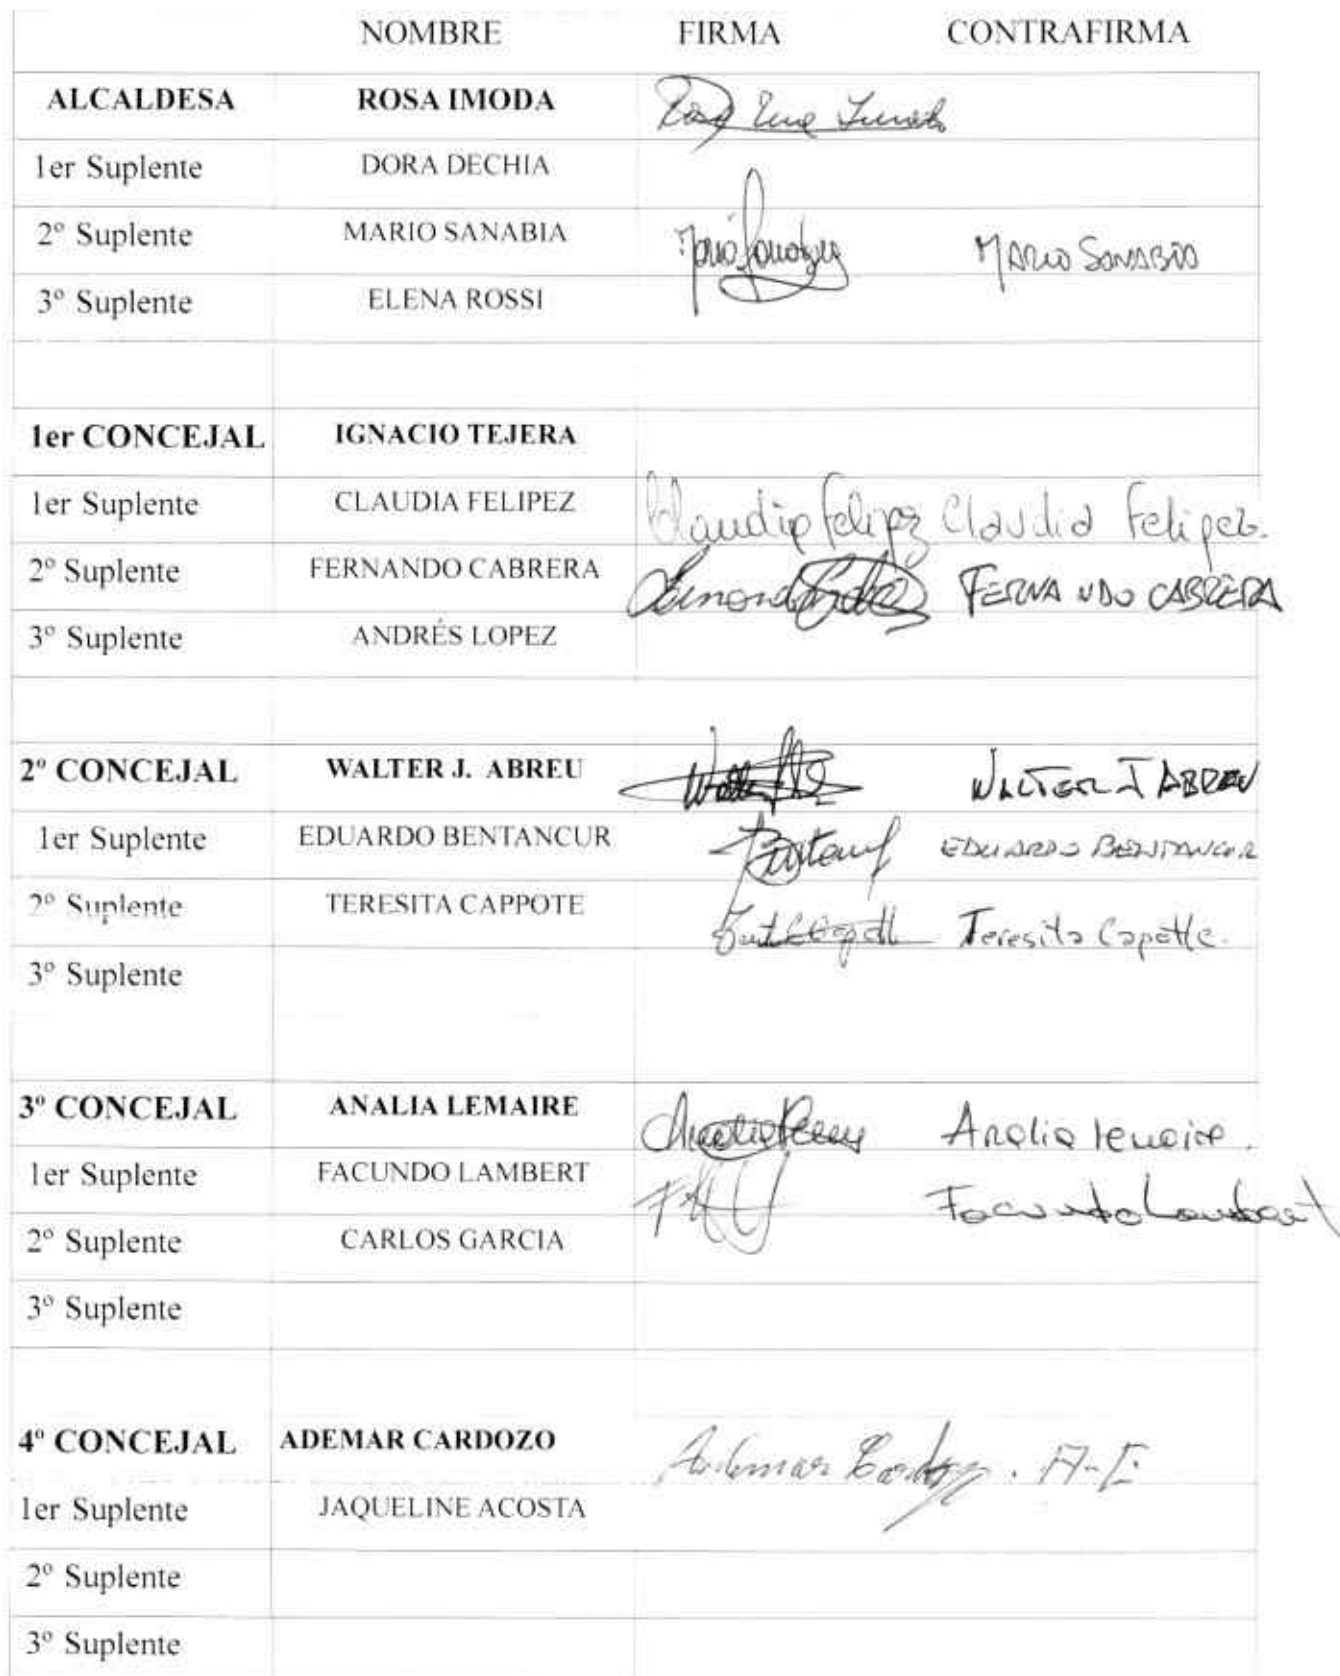 NOMBRE FIRMA CONTRAFIRMA
ALCALDESA ROSA IMODA
1er Suplente DORA DECHIA
2º Suplente MARIO SANABIA MARIO SANABIA
3º Suplente ELENA ROSSI
1er CONCEJAL IGNACIO TEJERA
1er Suplente CLAUDIA FELIPEZ Claudia Felipez Claudia Felipez.
2º Suplente FERNANDO CABRERA FERNANDO CABRERA
3º Suplente ANDRÉS LOPEZ
2º CONCEJAL WALTER J. ABREU WALTER J ABREU
1er Suplente EDUARDO BENTANCUR EDUARDO BENTANCUR
2º Suplente TERESITA CAPPOTE Teresita
3º Suplente
3º CONCEJAL ANALIA LEMAIRE Analia Lemaire.
1er Suplente FACUNDO LAMBERT Facundo Lambert
2º Suplente CARLOS GARCIA
3º Suplente
4º CONCEJAL ADEMAR CARDOZO Ademar Cardozo
1er Suplente JAQUELINE ACOSTA
2º Suplente
3º Suplente